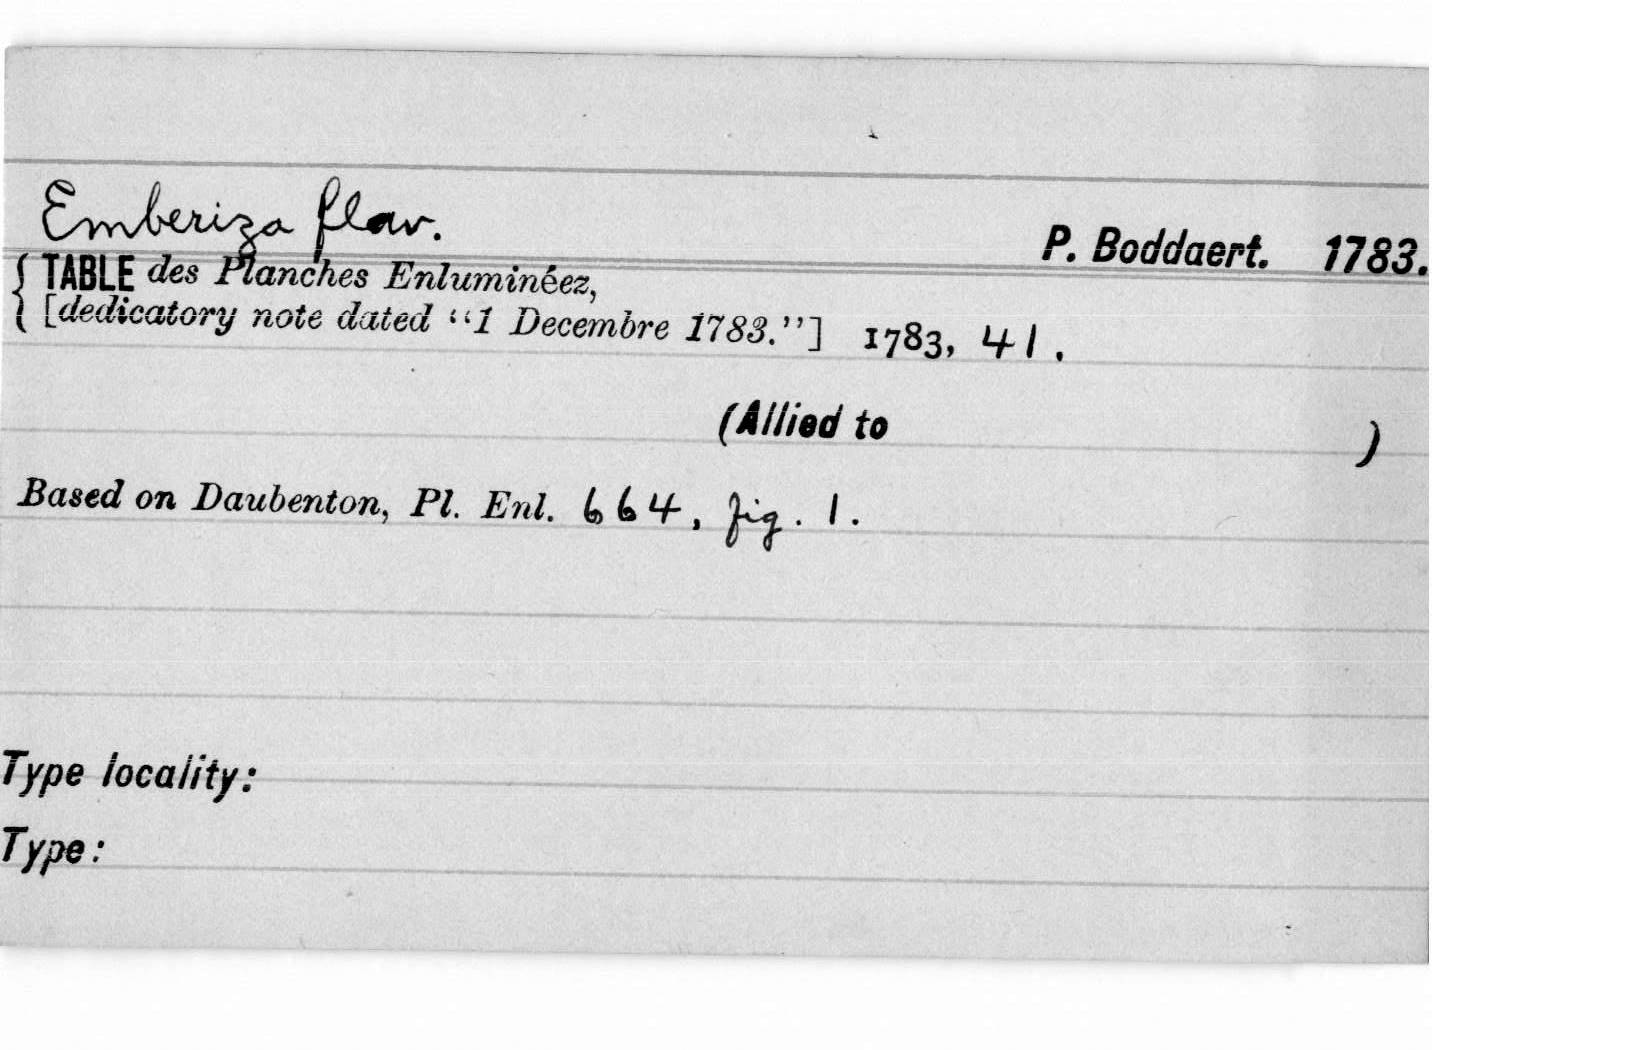 Emberiza flav.
P. Boddaert. 1783.
{ TABLE des Planches Enluminéez,
{ [dedicatory note dated "1 Decembre 1783."] 1783, 41.
(Allied to )
Based on Daubenton, Pl. Enl. 664, fig. 1.
Type locality:
Type: